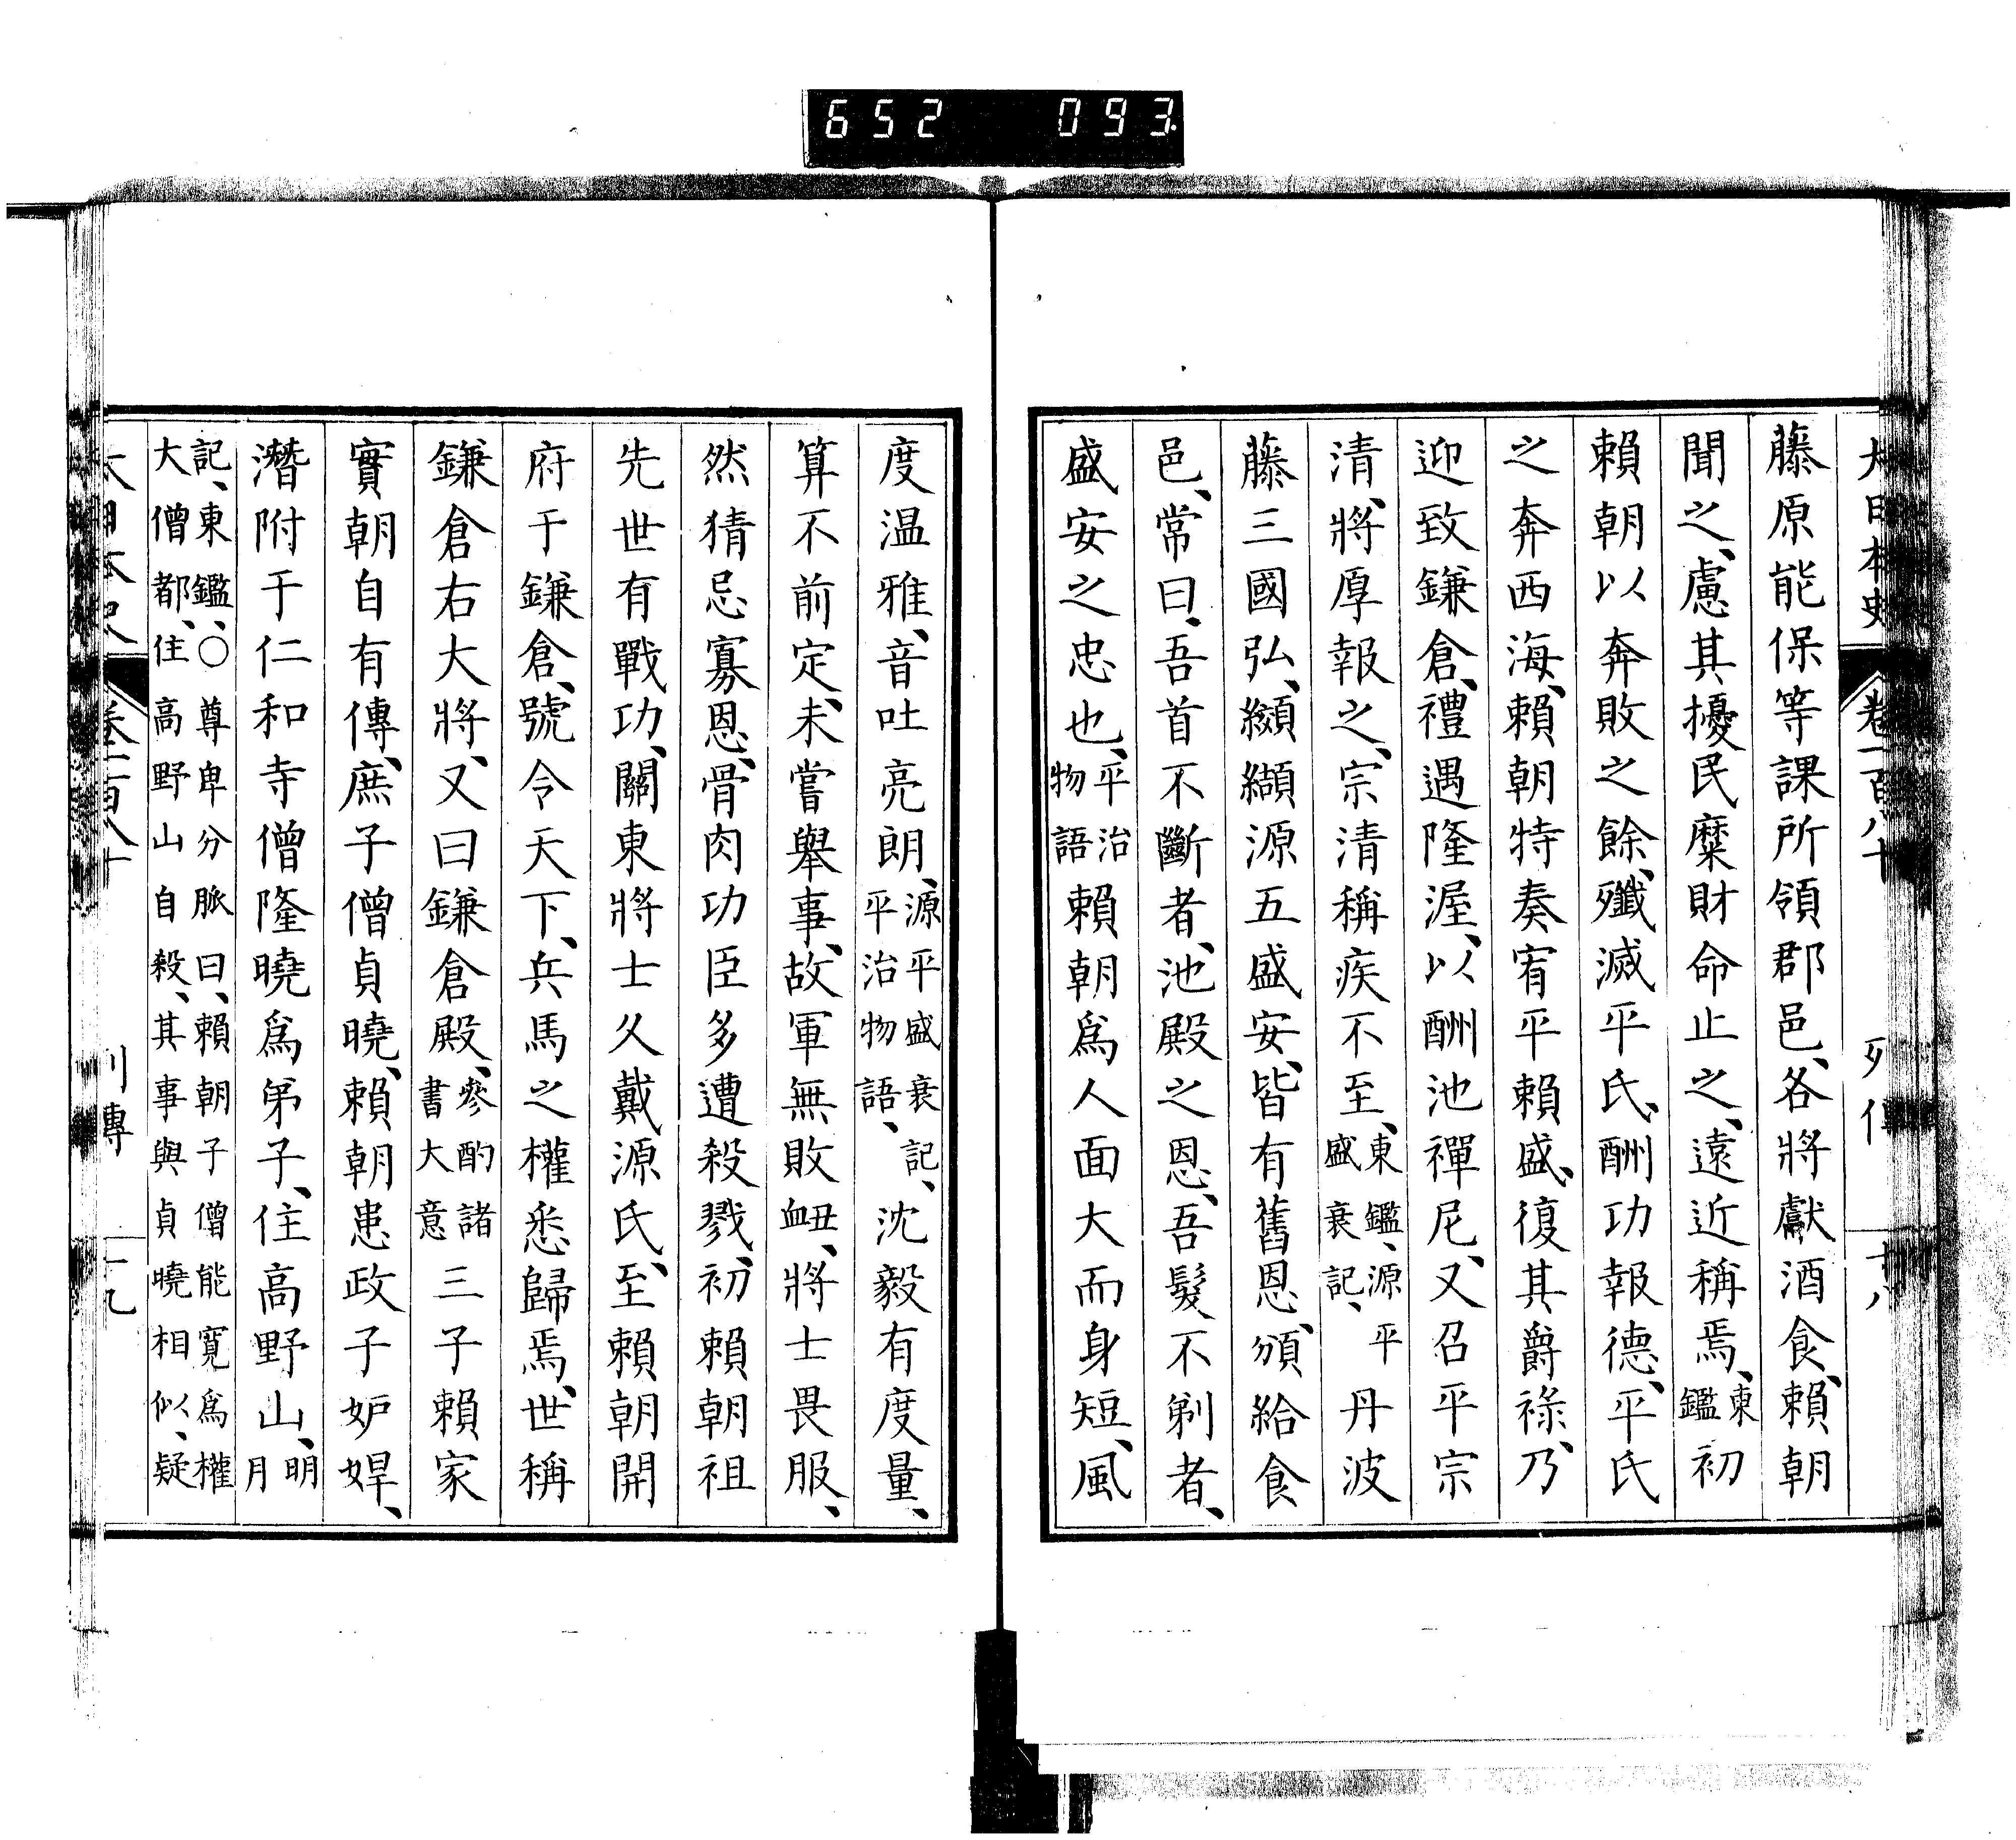 652 093
大日本史 卷一百八十 列傳 十八
藤原能保等課所領郡邑、各將獻酒食、賴朝
聞之、慮其擾民糜財命止之、遠近稱焉、東鑑初
賴朝以奔敗之餘、殲滅平氏、酬功報德、平氏
之奔西海、賴朝特奏宥平賴盛、復其爵祿、乃
迎致鎌倉、禮遇隆渥、以酬池禪尼、又召平宗
清、將厚報之、宗清稱疾不至、東鑑、源平盛衰記、丹波
藤三國弘、纐纈源五盛安、皆有舊恩、頒給食
邑、常曰、吾首不斷者、池殿之恩、吾髮不剃者、
盛安之忠也、平治物語賴朝爲人面大而身短、風
度温雅、音吐亮朗、源平盛衰記、平治物語、沈毅有度量、
算不前定、未嘗舉事、故軍無敗衄、將士畏服、
然猜忌寡恩、骨肉功臣多遭殺戮、初賴朝祖
先世有戰功、關東將士久戴源氏、至賴朝開
府于鎌倉、號令天下、兵馬之權悉歸焉、世稱
鎌倉右大將、又曰鎌倉殿、參酌諸書大意三子賴家
實朝自有傳、庶子僧貞曉、賴朝患政子妒悍、
潛附于仁和寺僧隆曉爲弟子、住高野山、明月
記、東鑑、○尊卑分脈曰、賴朝子僧能寬爲權
大僧都、住高野山自殺、其事與貞曉相似、疑
大日本史 卷一百八十 列傳 十九